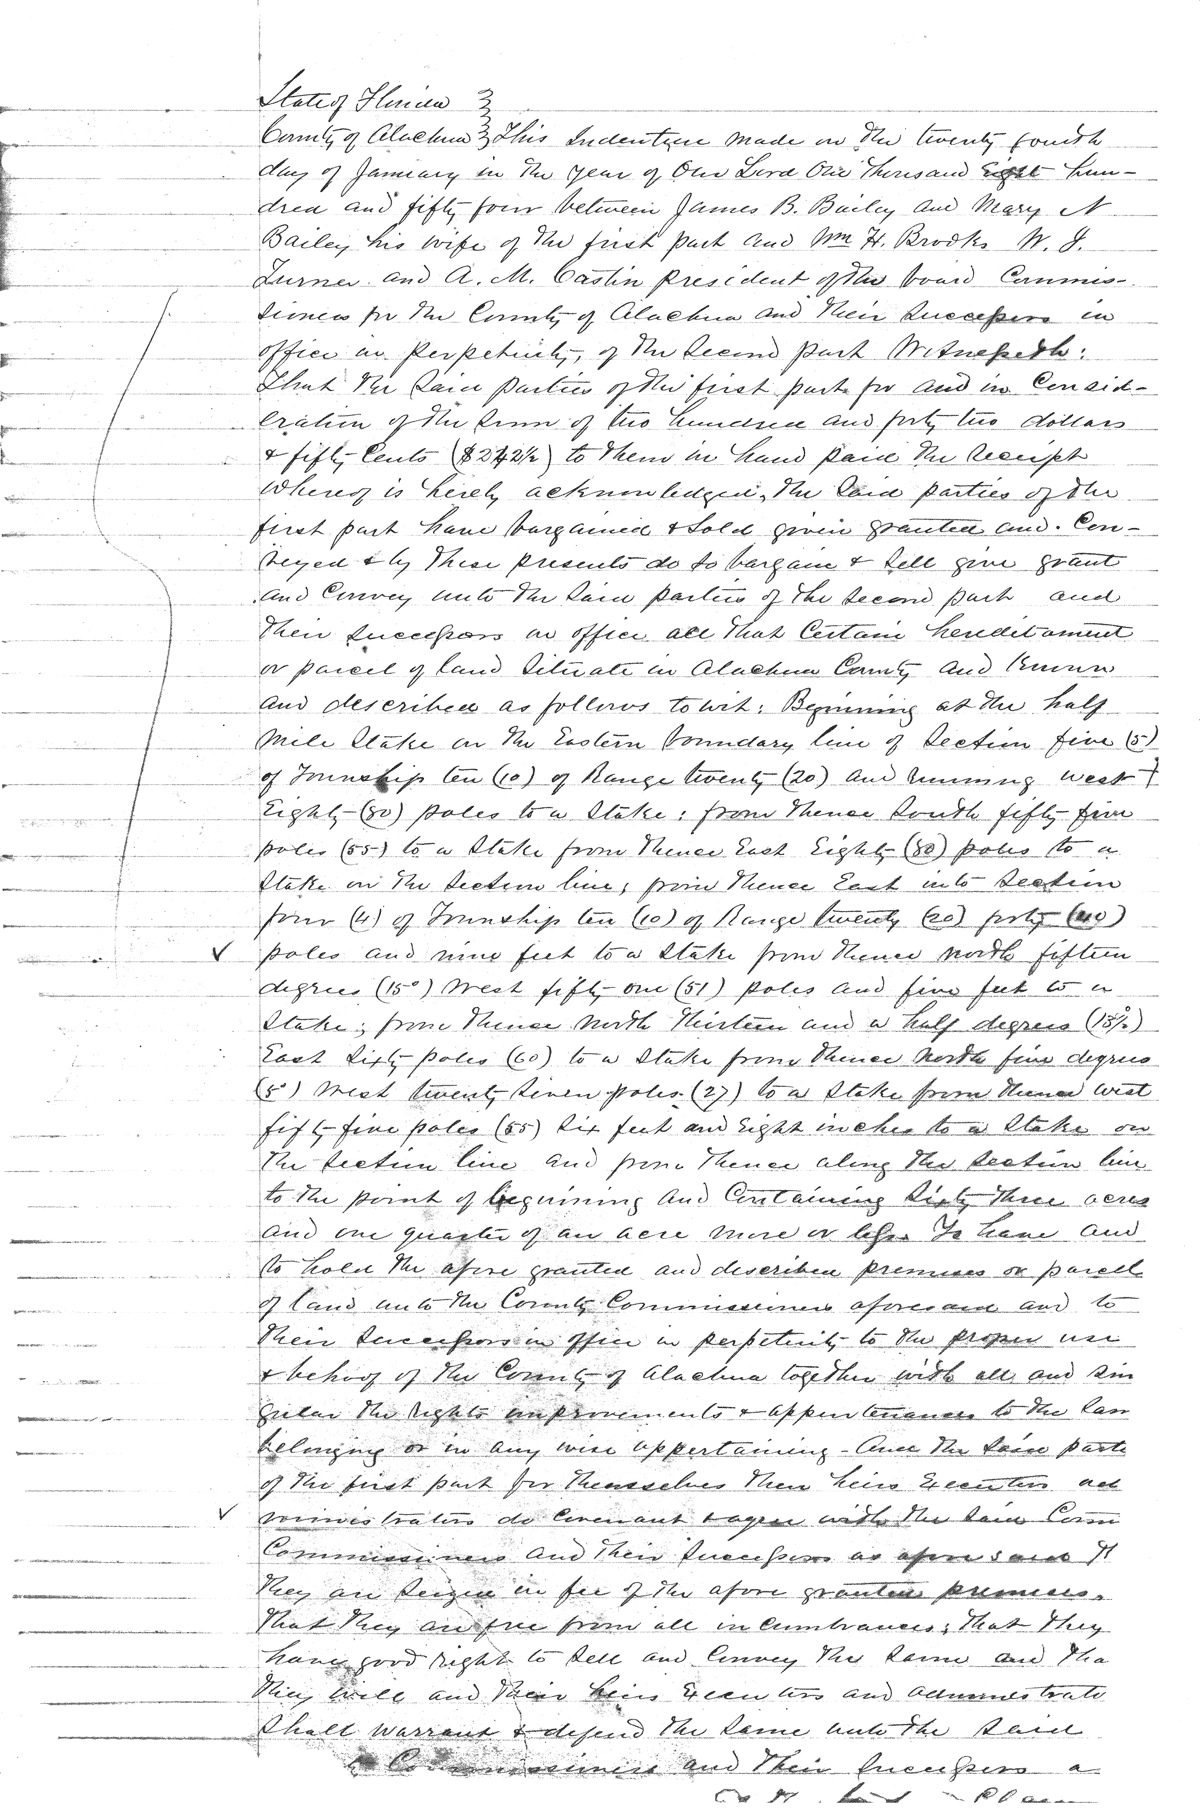 State of Florida }
County of Alachua } This Indenture made on the twenty fourth
day of January in the year of Our Lord One Thousand Eight hun-
dred and fifty four between James B. Bailey and Mary N
Bailey his wife of the first part and Wm H. Brooks W. J.
Turner and A. M. Caslin president of the board Commis-
sioners for the County of Alachua and their successors in
office in perpetuity, of the Second part Witnesseth:
That the Said parties of the first part for and in Consid-
eration of the Sum of two hundred and forty two dollars
& fifty Cents ($242½) to them in hand paid the receipt
whereof is hereby acknowledged, the Said parties of the
first part have bargained & Sold given granted and Con-
veyed & by these presents do so bargain & sell give grant
and Convey unto the Said parties of the Second part and
their successors in office all that Certain hereditament
or parcel of land Situate in Alachua County and known
and described as follows towit: Beginning at the half
mile Stake on the Eastern boundary line of Section five (5)
of Township ten (10) of Range twenty (20) and running west
Eighty (80) poles to a Stake: from thence South fifty five
poles (55) to a Stake from thence East Eighty (80) poles to a
Stake on the Section line; from thence East into Section
four (4) of Township ten (10) of Range twenty (20) forty (40)
poles and nine feet to a Stake from thence north fifteen
degrees (15°) West fifty one (51) poles and five feet to a
Stake; from thence North Thirteen and a half degrees (13½°)
East Sixty poles (60) to a Stake from thence North five degrees
(5°) West twenty Seven poles (27) to a Stake from thence west
fifty five poles (55) Six feet and Eight inches to a Stake on
the Section line and from thence along the Section line
to the point of beginning and Containing Sixty three acres
and one quarter of an acre more or less To have and
to hold the afore granted and described premises or parcel
of land unto the County Commissioners aforesaid and to
their Successors in office in perpetuity to the proper use
& behoof of the County of Alachua together with all and sin
gular the rights improvements & appurtenances to the Sam
belonging or in any wise appertaining - And the Said parts
of the first part for themselves their heirs Executors ad
ministrators do Covenant & agree with the Said Coun
Commissioners and their Successors as afore said th
they are Seized in fee of the afore granted premises.
that they are free from all incumbrances; that they
have good right to Sell and Convey the Same and tha
they will and their heirs Executors and administrato
Shall warrant & defend the Same unto the Said
Commissioners and their Successors a